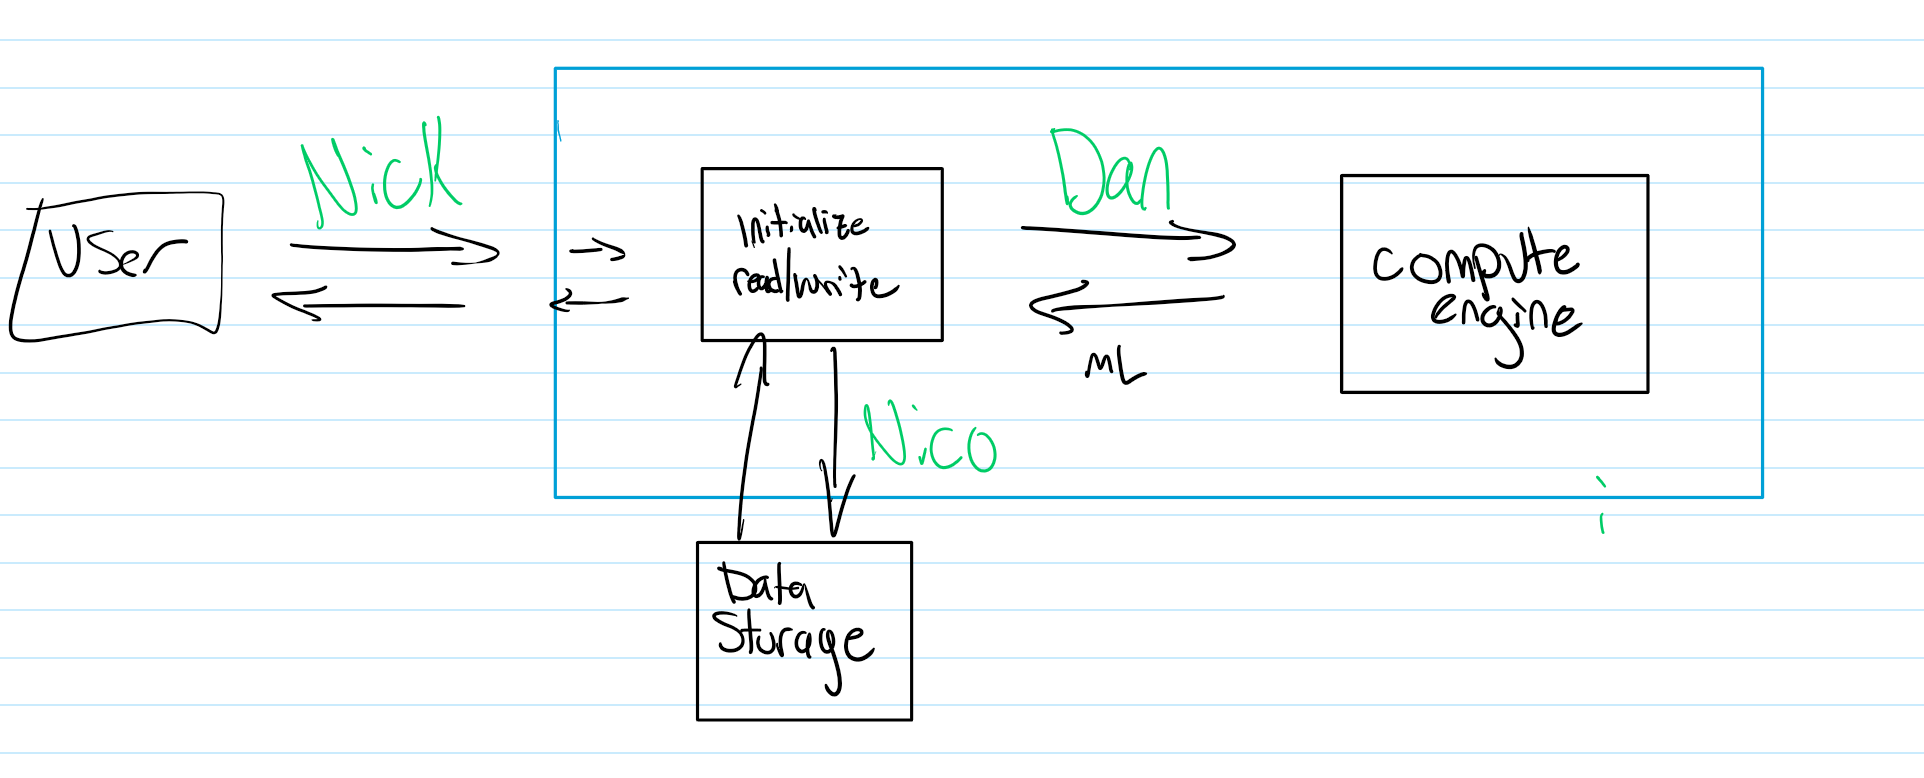 User
Nick
Initialize
read/write
Dan
ML
compute
engine
Nico
Data
Storage